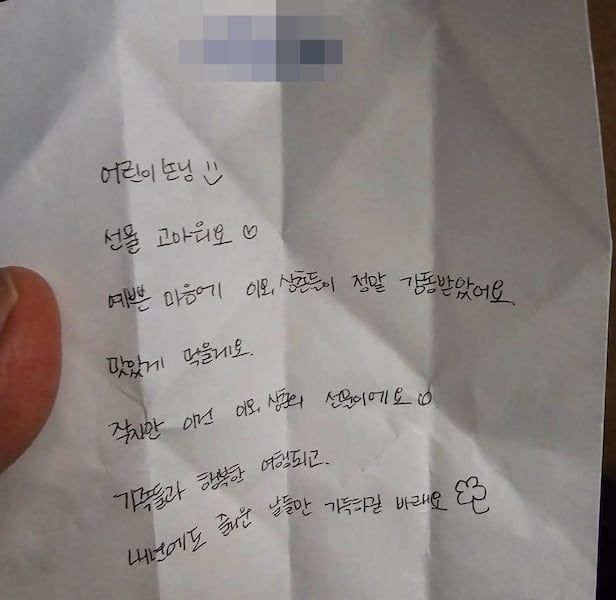 어린이 손님
선물 고마워요
예쁜 마음에 이모,삼촌들이 정말 감동받았어요.
맛있게 먹을게요.
작지만 이건 이모,삼촌의 선물이에요
가족들과 행복한 여행되고.
내년에도 즐거운 날들만 가득하길 바래요